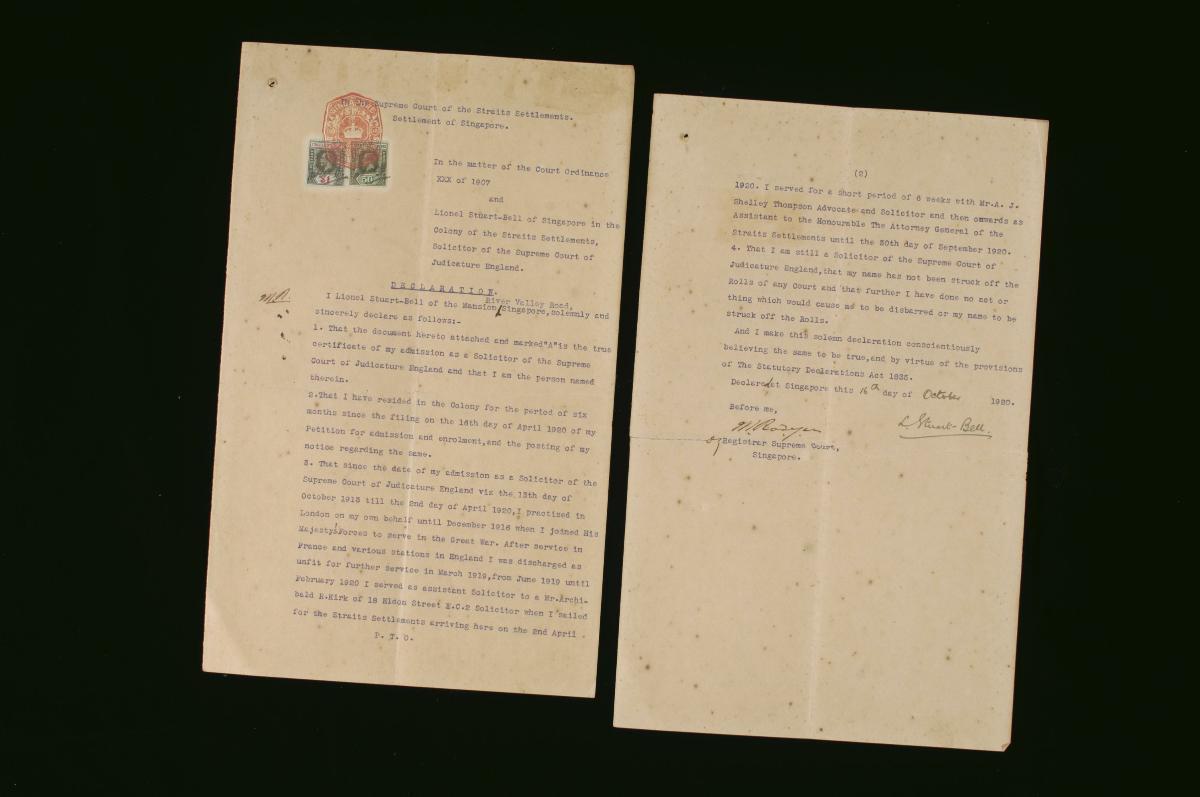 In the Supreme Court of the Straits Settlements.
Settlement of Singapore.
$1
50
In the matter of the Court Ordinance
XXX of 1907
and
Lionel Stuart-Bell of Singapore in the
Colony of the Straits Settlements,
Solicitor of the Supreme Court of
Judicature England.
DECLARATION.
River Valley Road,
I Lionel Stuart-Bell of the Mansion Singapore, solemnly and
sincerely declare as follows:-
1. That the document hereto attached and marked"A"is the true
certificate of my admission as a Solicitor of the Supreme
Court of Judicature England and that I am the person named
therein.
2.That I have resided in the Colony for the period of six
months since the filing on the 16th day of April 1920 of my
Petition for admission and enrolment,and the posting of my
notice regarding the same.
3. That since the date of my admission as a Solicitor of the
Supreme Court of Judicature England viz the 13th day of
October 1913 till the 2nd day of April 1920,I practised in
London on my own behalf until December 1916 when I joined His
Majesty's Forces to serve in the Great War. After service in
France and various stations in England I was discharged as
unfit for further service in March 1919,from June 1919 until
February 1920 I served as assistant Solicitor to a Mr.Archi-
bald R.Kirk of 18 Eldon Street E.C.2 Solicitor when I sailed
for the Straits Settlements arriving here on the 2nd April .
P. T. O.
(2)
1920. I served for a short period of 6 weeks with Mr.A. J.
Shelley Thompson Advocate and Solicitor and then onwards as
Assistant to the Honourable The Attorney General of the
Straits Settlements until the 30th day of September 1920.
4. That I am still a Solicitor of the Supreme Court of
Judicature England,that my name has not been struck off the
Rolls of any Court and that further I have done no act or
thing which would cause me to be disbarred or my name to be
struck off the Rolls.
And I make this solemn declaration conscientiously
believing the same to be true,and by virtue of the provisions
of The Statutory Declarations Act 1835.
Declared at Singapore this 16th day of October 1920.
Before me,
L Stuart-Bell.
Dy Registrar Supreme Court,
Singapore.